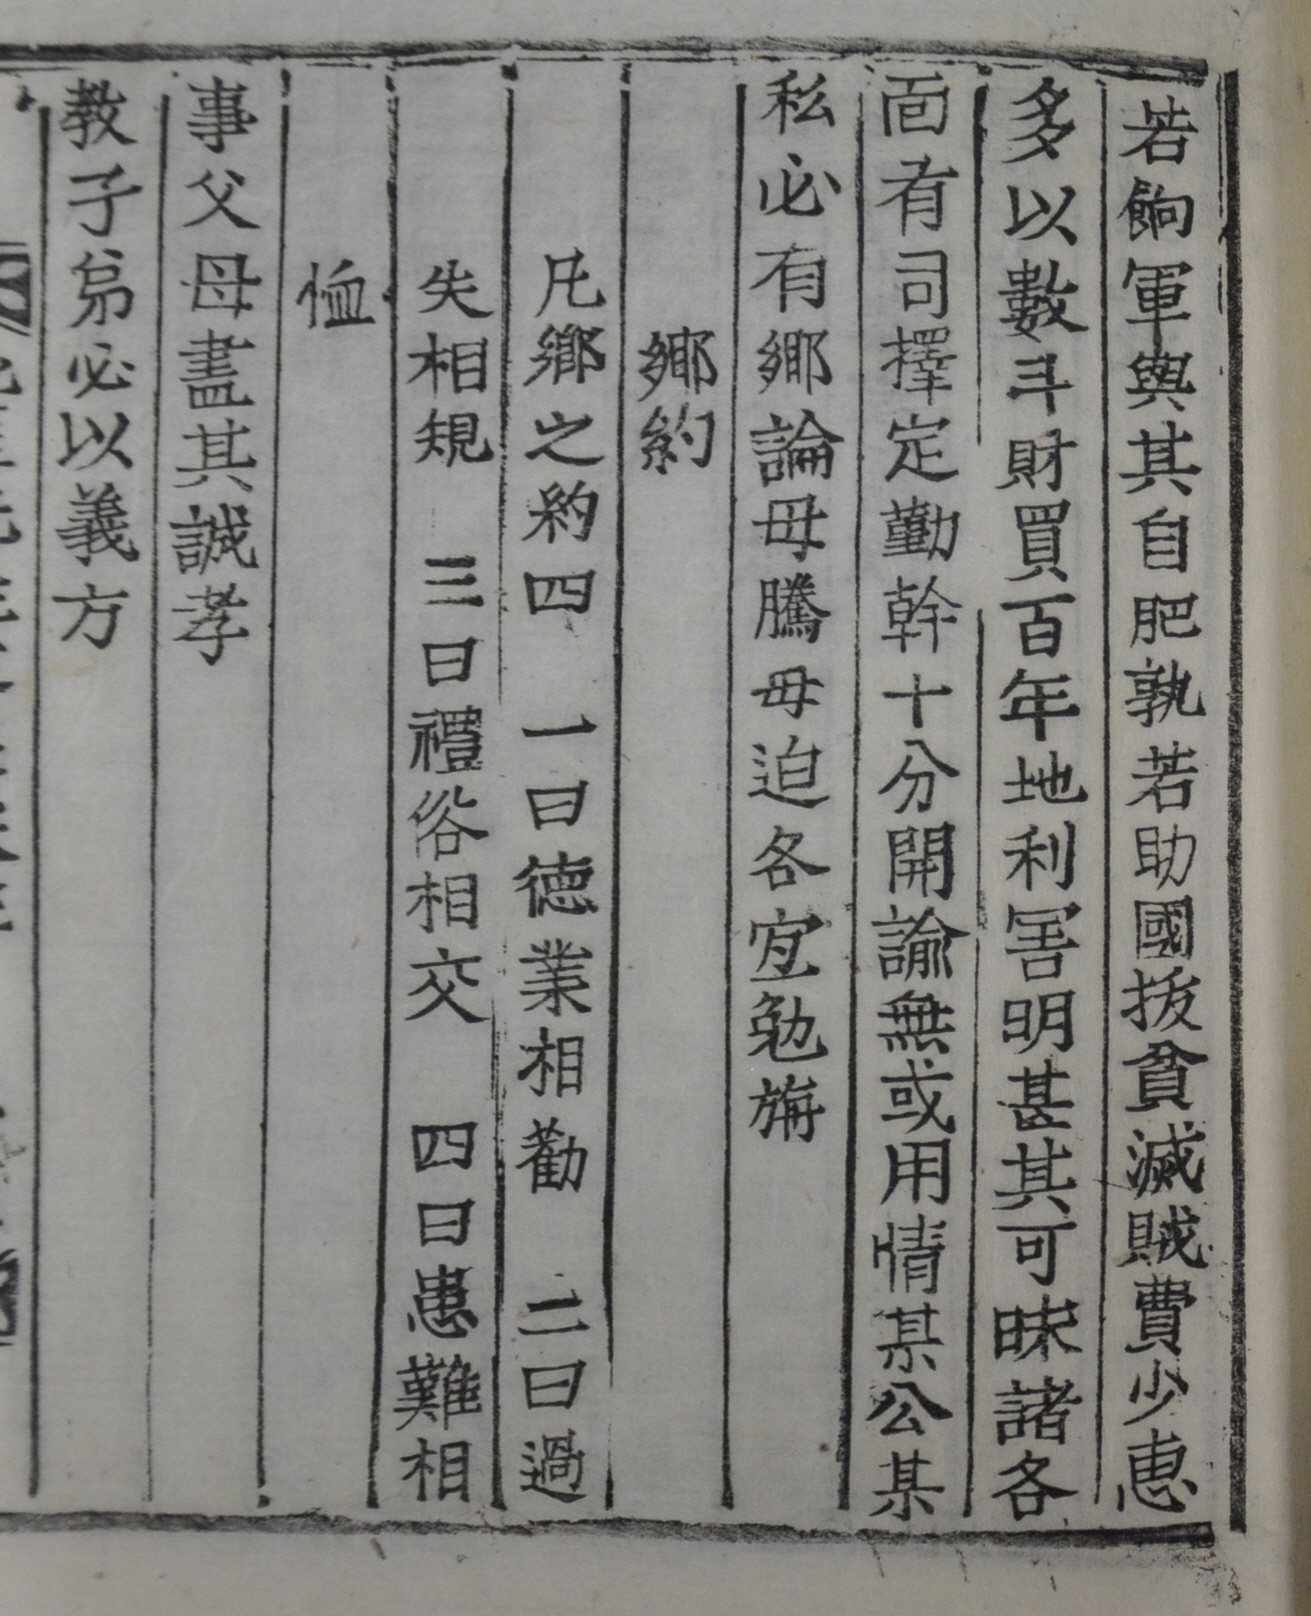 若餉軍與其自肥孰若助國拔貧滅賊費少惠
多以數斗財買百年地利害明甚其可昧諸各
面有司擇定勤幹十分開諭無或用情某公某
私必有鄉論毋騰毋迫各宜勉旃
鄉約
凡鄉之約四 一曰德業相勸 二曰過
失相規 三曰禮俗相交 四曰患難相
恤
事父母盡其誠孝
教子弟必以義方